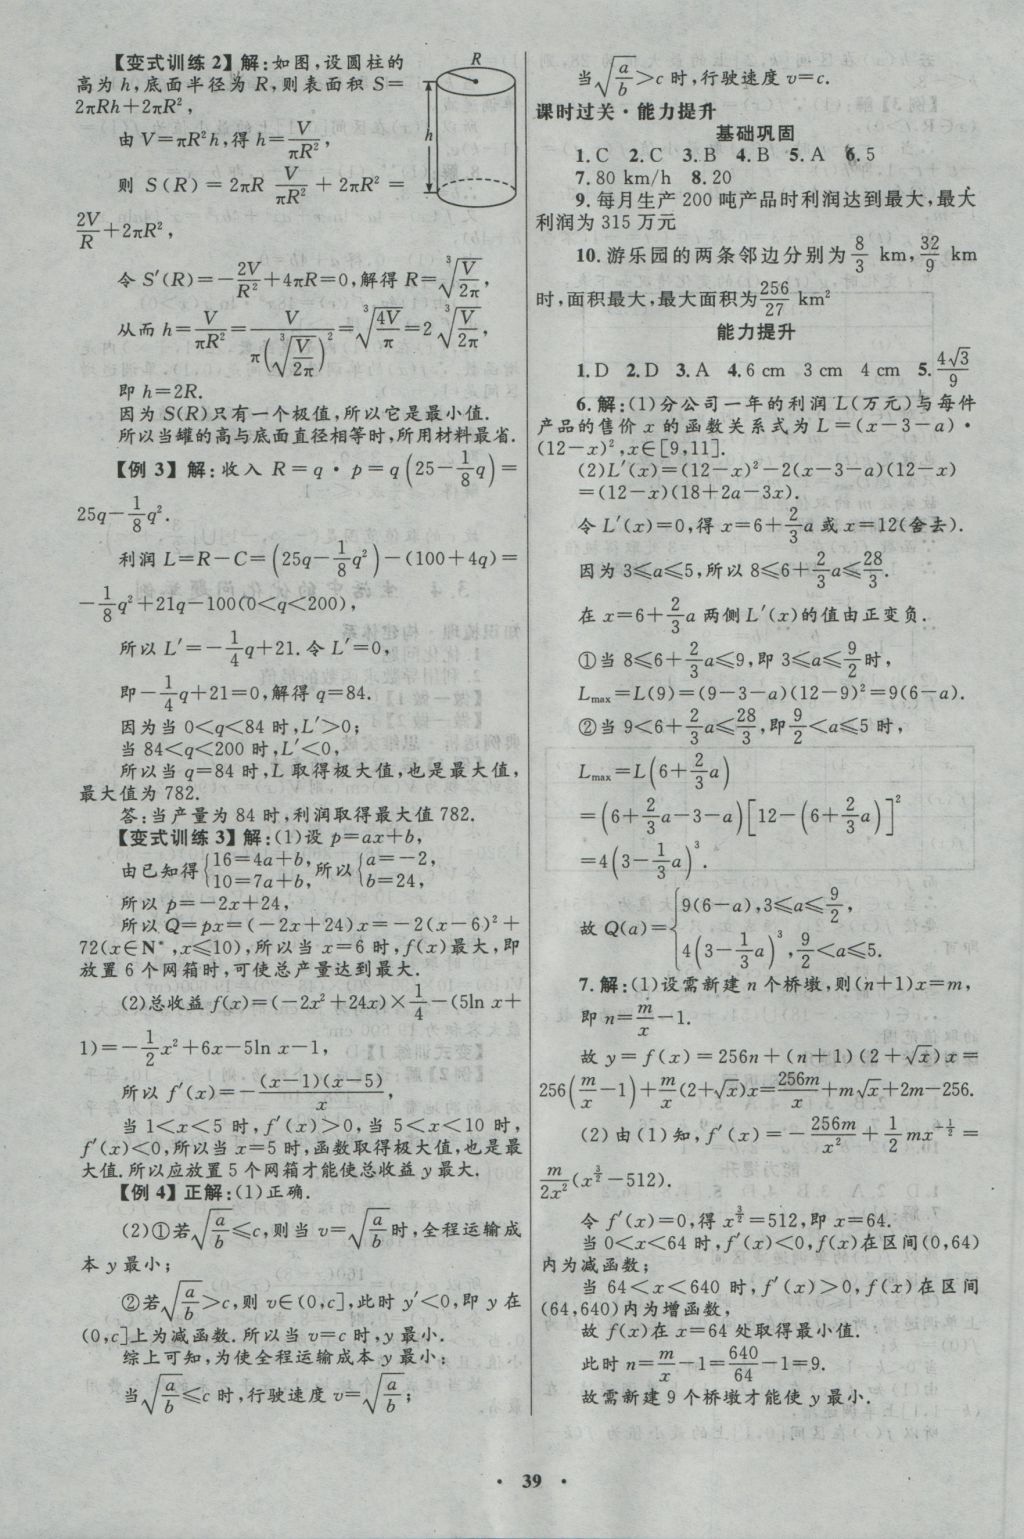 【变式训练2】解:如图,设圆柱的
高为h,底面半径为R,则表面积S=
2πRh+2πR²,
由V=πR²h,得h=V/(πR²),
则 S(R)=2πR V/(πR²)+2πR²=
2V/R+2πR²,
令S′(R)=-2V/R²+4πR=0,解得R=∛(V/2π),
从而h=V/(πR²)=V/(π(∛(V/2π))²)=∛(4V/π)=2∛(V/2π),
即h=2R.
因为S(R)只有一个极值,所以它是最小值.
所以当罐的高与底面直径相等时,所用材料最省.
R
h
【例3】解:收入R=q·p=q(25-1/8q)=
25q-1/8q².
利润L=R-C=(25q-1/8q²)-(100+4q)=
-1/8q²+21q-100(0<q<200),
所以L′=-1/4q+21.令L′=0,
即-1/4q+21=0,解得q=84.
因为当0<q<84时,L′>0;
当84<q<200时,L′<0,
所以当q=84时,L取得极大值,也是最大值,
最大值为782.
答:当产量为84时,利润取得最大值782.
【变式训练3】解:(1)设p=ax+b,
由已知得{16=4a+b, 10=7a+b, 所以{a=-2, b=24,
所以p=-2x+24,
所以Q=px=(-2x+24)x=-2(x-6)²+
72(x∈N*,x≤10),所以当x=6时,f(x)最大,即
放置6个网箱时,可使总产量达到最大.
(2)总收益f(x)=(-2x²+24x)×1/4-(5ln x+
1)=-1/2x²+6x-5ln x-1,
所以f′(x)=-(x-1)(x-5)/x,
当1<x<5时,f′(x)>0,当5<x<10时,
f′(x)<0,所以当x=5时,函数取得极大值,也是最
大值.所以应放置5个网箱才能使总收益y最大.
【例4】正解:(1)正确.
(2)①若√(a/b)≤c,则当v=√(a/b)时,全程运输成
本y最小;
②若√(a/b)>c,则v∈(0,c],此时y′<0,即y在
(0,c]上为减函数.所以当v=c时,y最小.
综上可知,为使全程运输成本y最小;
当√(a/b)≤c时,行驶速度v=√(a/b);
当√(a/b)>c时,行驶速度v=c.
课时过关·能力提升
基础巩固
1.C 2.C 3.B 4.B 5.A 6.5
7.80 km/h 8.20
9.每月生产200吨产品时利润达到最大,最大
利润为315万元
10.游乐园的两条邻边分别为8/3 km,32/9 km
时,面积最大,最大面积为256/27 km²
能力提升
1.D 2.D 3.A 4.6 cm 3 cm 4 cm 5.4√3/9
6.解:(1)分公司一年的利润L(万元)与每件
产品的售价x的函数关系式为L=(x-3-a)·
(12-x)²,x∈[9,11].
(2)L′(x)=(12-x)²-2(x-3-a)(12-x)
=(12-x)(18+2a-3x).
令L′(x)=0,得x=6+2/3a或x=12(舍去).
因为3≤a≤5,所以8≤6+2/3a≤28/3.
在x=6+2/3a两侧L′(x)的值由正变负.
①当8≤6+2/3a≤9,即3≤a≤9/2时,
Lmax=L(9)=(9-3-a)(12-9)²=9(6-a).
②当9<6+2/3a≤28/3,即9/2<a≤5时,
Lmax=L(6+2/3a)
=(6+2/3a-3-a)[12-(6+2/3a)]²
=4(3-1/3a)³.
故Q(a)={9(6-a),3≤a≤9/2, 4(3-1/3a)³,9/2<a≤5.
7.解:(1)设需新建n个桥墩,则(n+1)x=m,
即n=m/x-1.
故y=f(x)=256n+(n+1)(2+√x)x=
256(m/x-1)+m/x(2+√x)x=256m/x+m√x+2m-256.
(2)由(1)知,f′(x)=-256m/x²+1/2mx^(-1/2)=
m/2x²(x^(3/2)-512).
令f′(x)=0,得x^(3/2)=512,即x=64.
当0<x<64时,f′(x)<0,f(x)在区间(0,64)
内为减函数;
当64<x<640时,f′(x)>0,f(x)在区间
(64,640)内为增函数,
故f(x)在x=64处取得最小值.
此时n=m/x-1=640/64-1=9.
故需新建9个桥墩才能使y最小.
· 39 ·